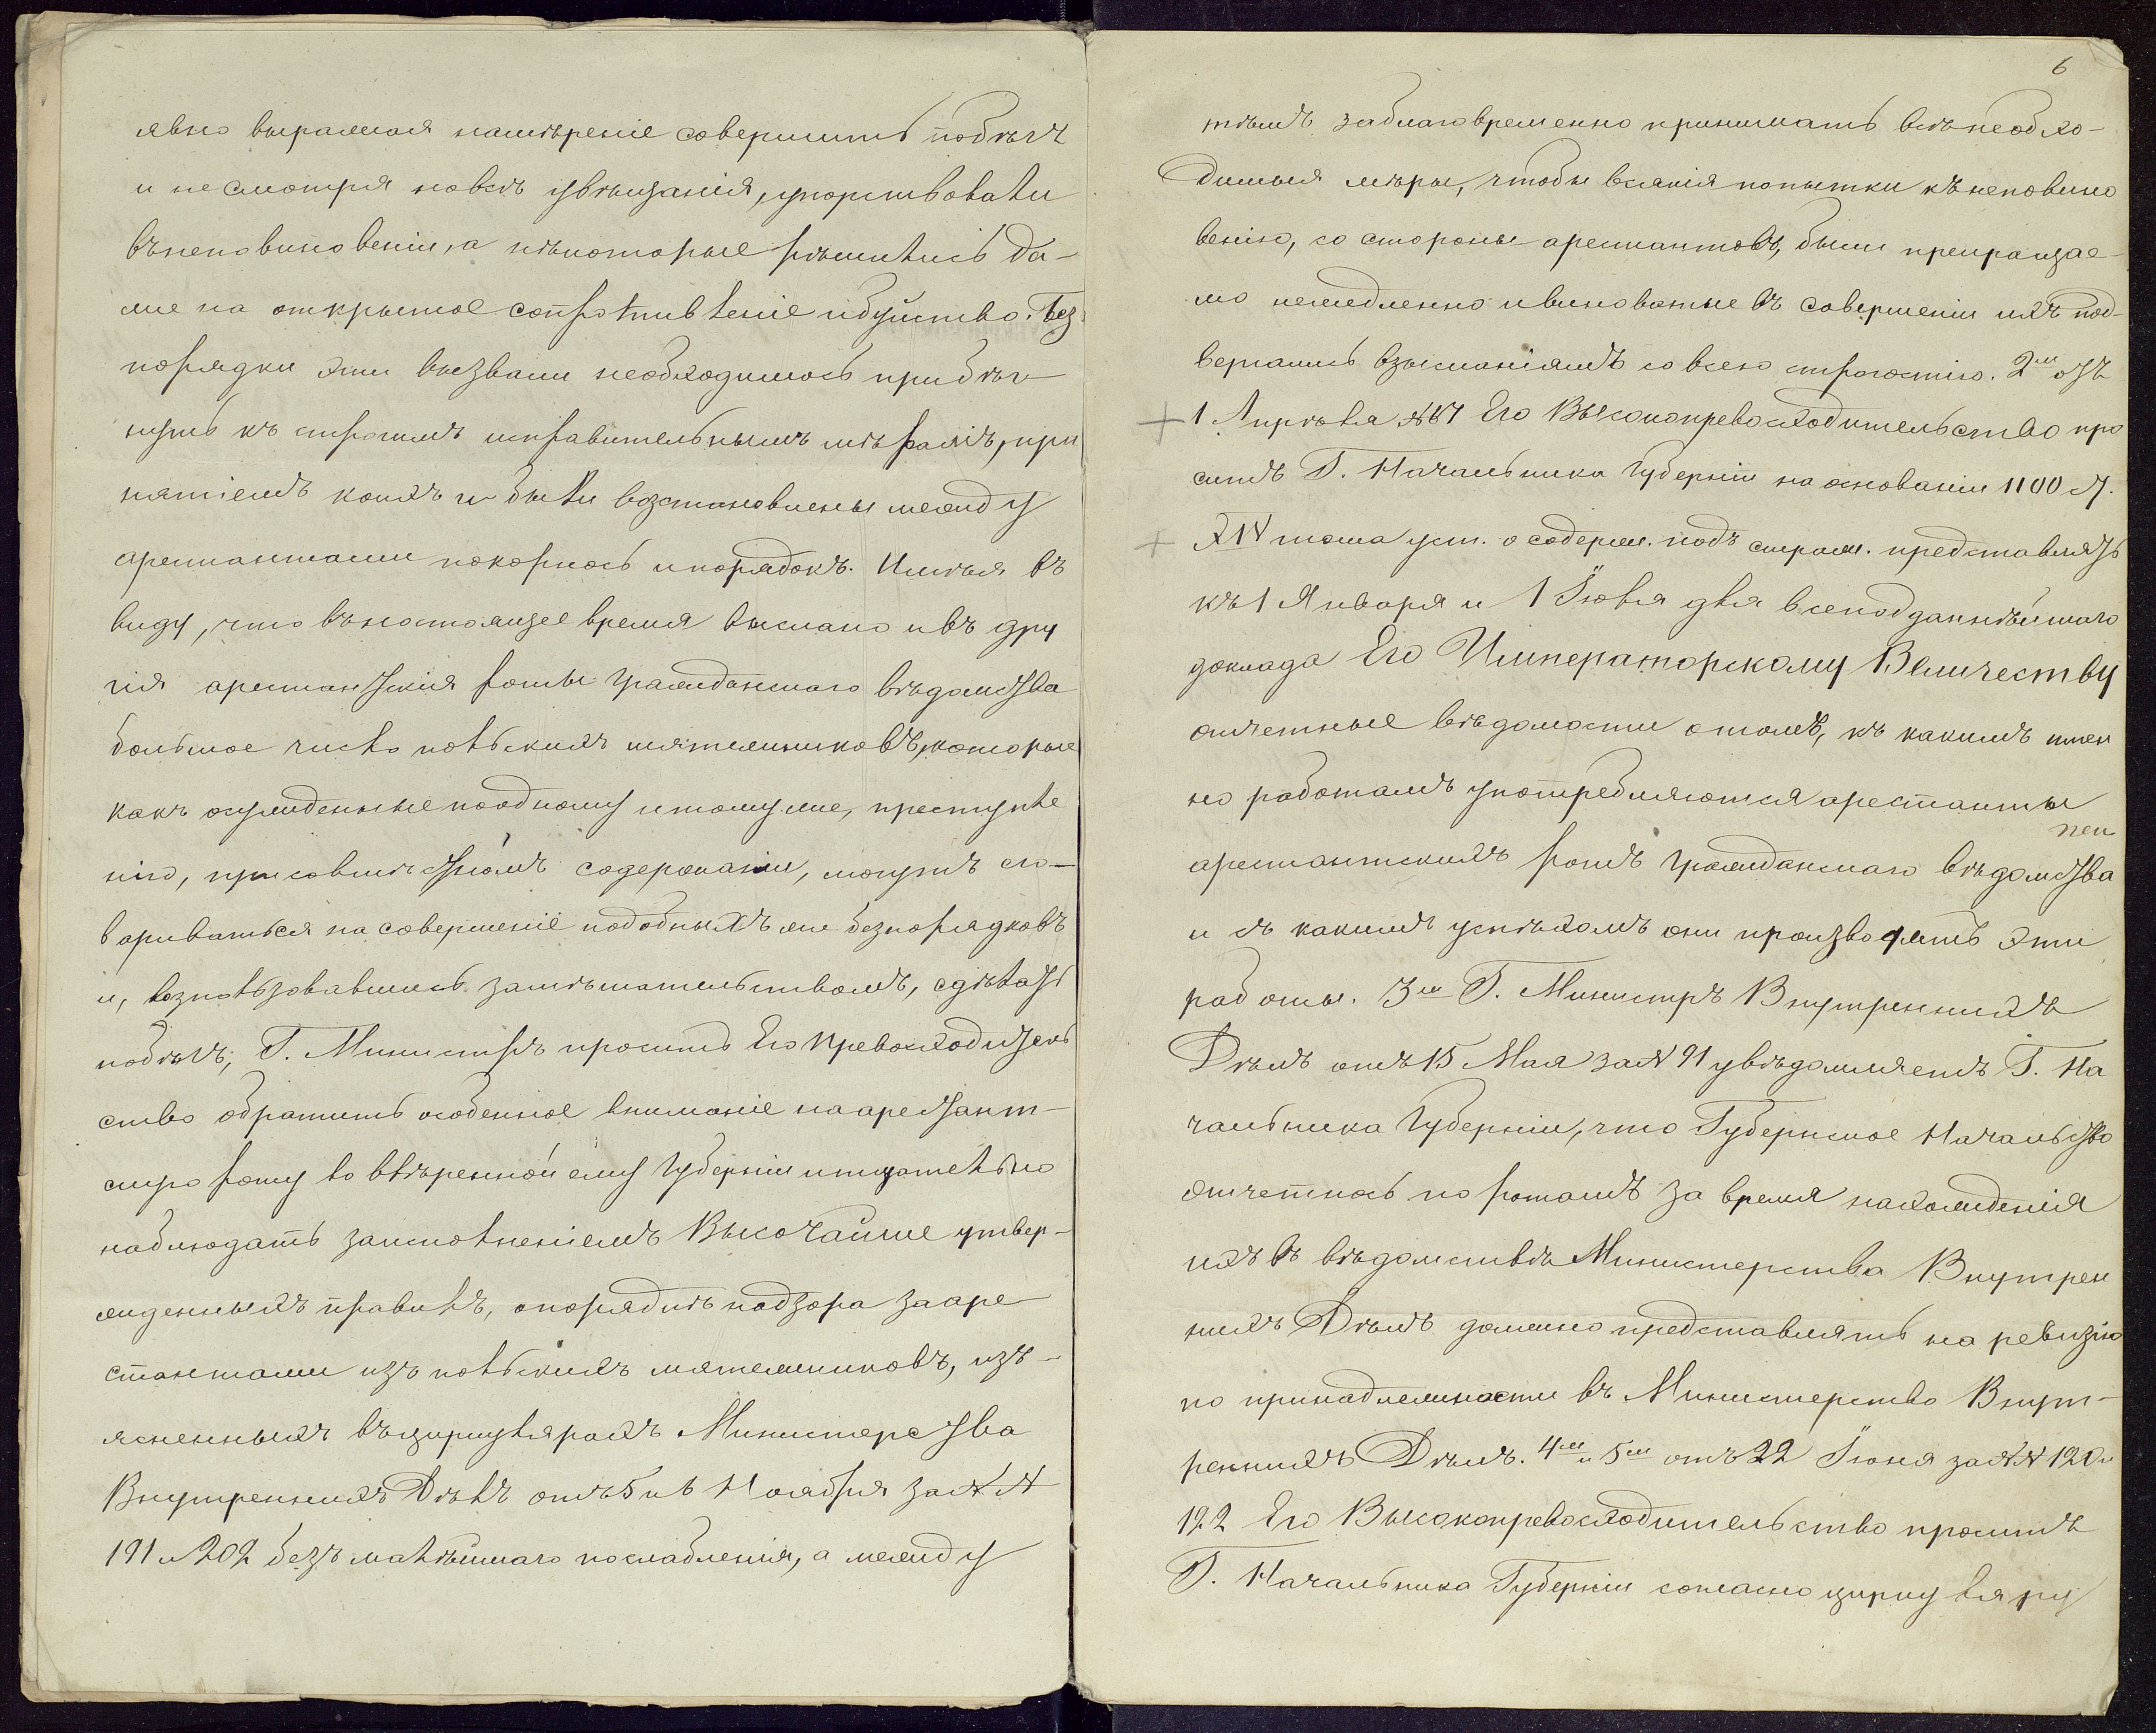 явно выражая намѣреніе совершить побѣгъ
и не смотря на всѣ увѣщанія, упорствовали
въ неповиновеніи, а нѣкоторые рѣшились да-
же на открытое сопротивленіе и буйство. Без-
порядки эти вызвали необходимость прибѣг-
нуть къ строгимъ исправительнымъ мѣрамъ, при
нятіемъ коихъ и были возстановлены между
арестантами покорность и порядокъ. Имѣя въ
виду, что въ настоящее время выслано и въ дру
гія арестантскія роты гражданскаго вѣдомства
большое число польскихъ мятежниковъ, которые
какъ осужденные по одному и тому же, преступле
нію, при совмѣстномъ содержаніи, могутъ сго-
вариваться на совершеніе подобныхъ же безпорядковъ
и, воспользовавшись замѣшательствомъ, сдѣлать
побѣгъ, Г. Министръ проситъ Его Превосходитель
ство обратить особенное вниманіе на арестант-
скую роту во ввѣренной ему Губерніи и тщательно
наблюдать за исполненіемъ Высочайше утвер-
жденныхъ правилъ, о порядкѣ надзора за аре
стантами изъ польскихъ мятежниковъ, изъ-
ясненныхъ въ циркулярахъ Министерства
Внутреннихъ Дѣлъ отъ 5 и 6 Ноября за № №
191 и 202 безъ малѣйшаго послабленія, а между
6
тѣмъ заблаговременно принимать всѣ необхо-
димыя мѣры, чтобы всякія попытки къ неповино
венію, со стороны арестантовъ, были прекращае-
мо немедленно и виноватые въ совершеніи ихъ под-
вергались взысканіямъ со всею строгостію. 2мъ отъ
1 Апрѣля № 67 Его Высокопревосходительство про
ситъ Г. Начальника Губерніи на основаніи 1100 ст.
XIV тома уст. о содерж. подъ страж. представлять
къ 1 Января и 1 Іюля для всеподданнѣйшаго
доклада Его Императорскому Величеству
отчетныя вѣдомости о томъ, къ какимъ имен
но работамъ употребляются арестанты
арестантскихъ ротъ гражданскаго вѣдомства
и съ какимъ успѣхомъ они производятъ эти
работы. 3мъ Г. Министръ Внутреннихъ
Дѣлъ отъ 15 Мая за № 91 увѣдомляетъ Г. На
чальника Губерніи, что Губернское Начальство
отчетность по ротамъ за время нахожденія
ихъ въ вѣдомствѣ Министерства Внутрен
нихъ Дѣлъ должно представлять на ревизію
по принадлежности въ Министерство Внут-
реннихъ Дѣлъ. 4мъ и 5мъ отъ 22 Іюня за № № 120 и
122 Его Высокопревосходительство проситъ
Г. Начальника Губерніи согласно циркуляру